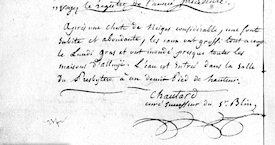 voyez le registre de l'année précédente.
Après une chute de Neiges considérable, une fonte
subite et abondante, les eaux ont grossi tout à coup
le Lundi gras et ont inondé presque toutes les
maisons d'alluye. L'eau est entrée dans la Salle
du Presbytère à un demi pied de hauteur.
Chautard
curé successeur du Sr Blin